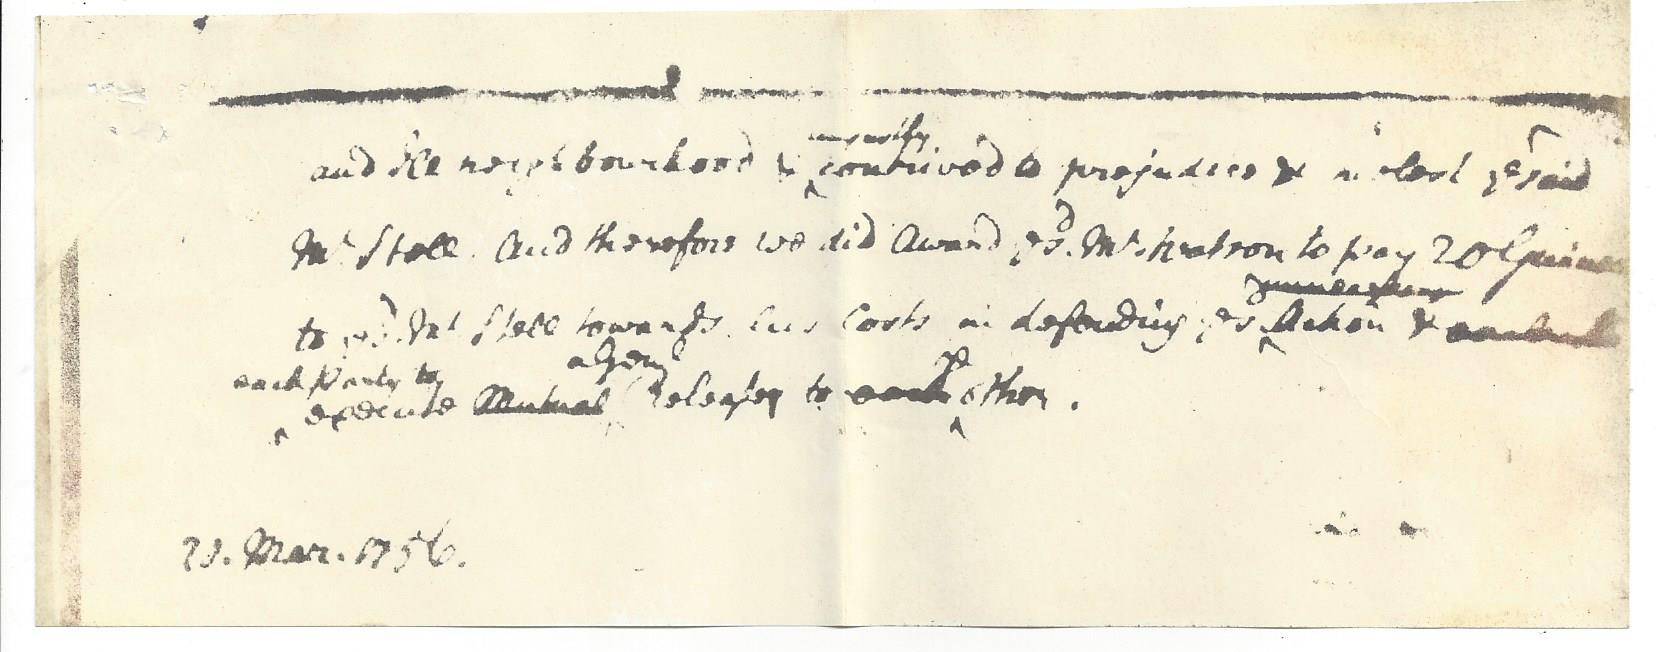 and ill neighbourhood & contrived to prejudice & molest yᵉ said
Mʳ Stell. And therefore we did Award yᵉ sᵈ. Mʳ. to pay 20 Guineas
to yᵉ sᵈ. Mʳ Stell towards his Costs in defending yˢ Action &
each Party to a Genˡ
execute Mutual Releases to each other.
23. Mar. 1756.